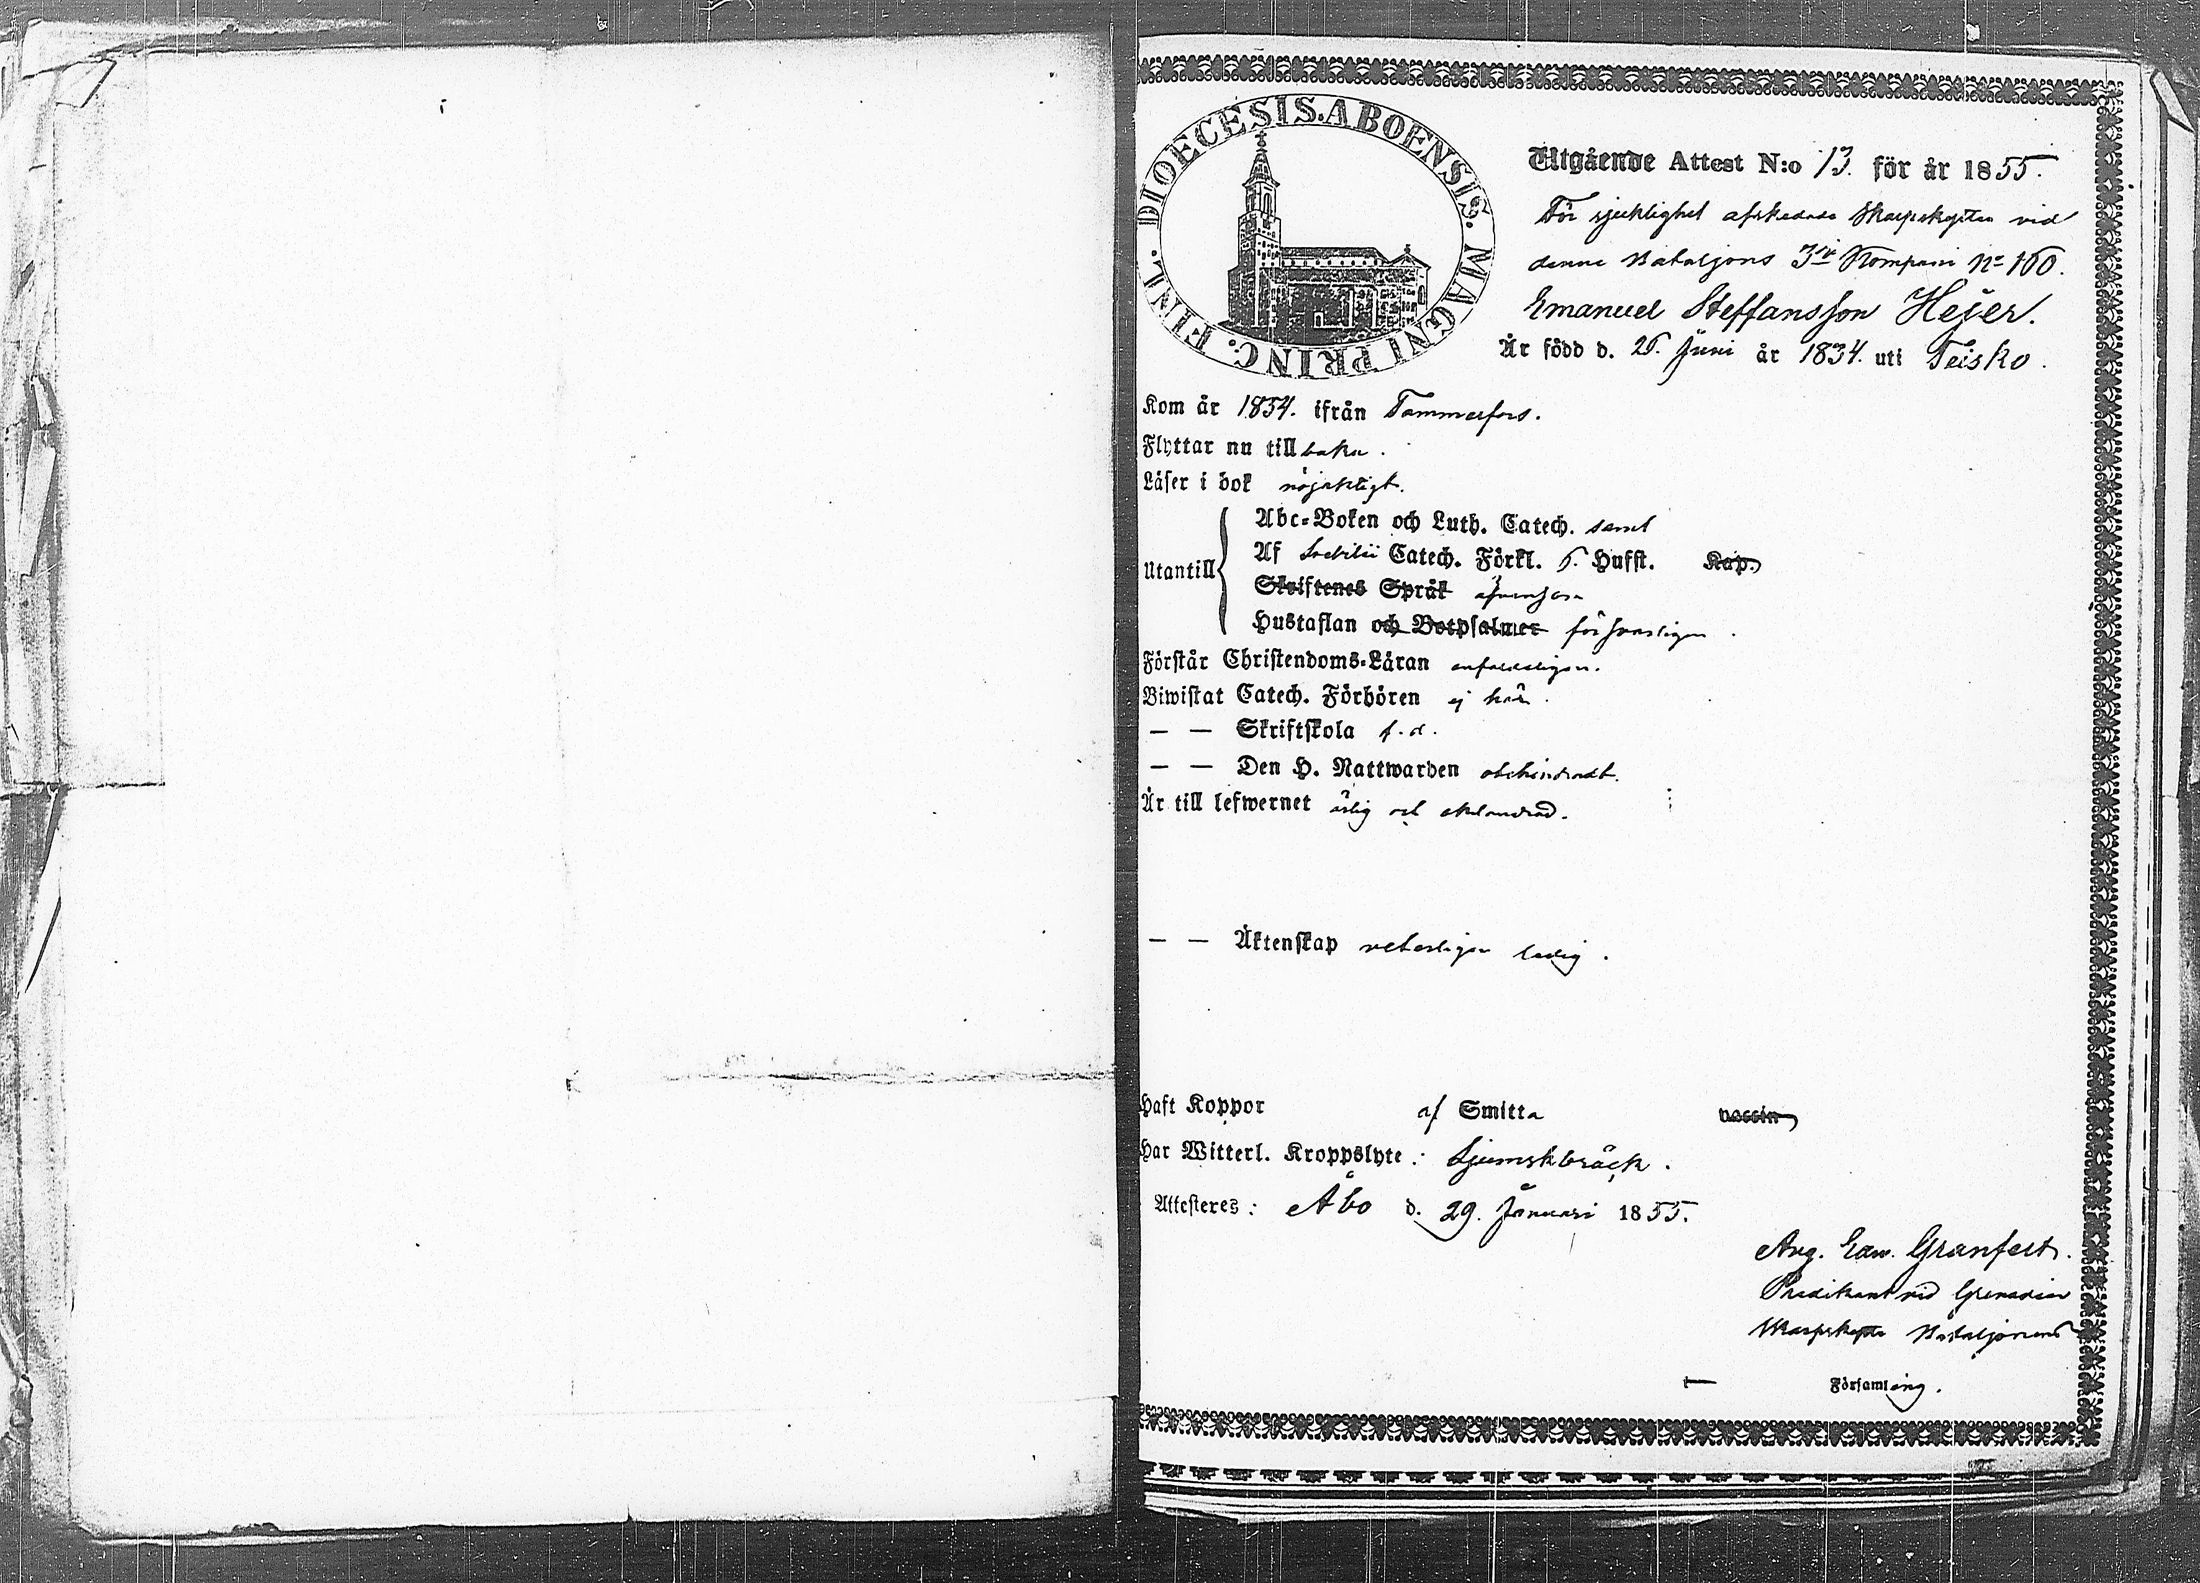 DIOECESIS. ABOENSIS. MAGNI PRINC. FINL.
Utgående Attest N:o 13. för år 1855.
För sjuklighet afskedade Skarpskytten vid
denna Bataljons 3die Kompani No 160.
Emanuel Steffansson Hejer.
Är född d. 26. Juni år 1834. uti Teisko.
Kom år 1854. ifrån Tammerfors.
Flyttar nu tillbaka.
Läser i bok nöjaktigt.
Abc-Boken och Luth. Catech. samt
Utantill Af Svebilii Catech. Förkl. 6. Hufst. Kap.
Skriftenes Språk äfvensom
Hustaflan och Botpsalmer försvarligen.
Förstår Christendoms-Läran enfaldeligen.
Biwistat Catech. Förhören ej här.
— — Skriftskola f. d.
— — Den H. Nattwarden obehindradt.
Är till lefwernet ärlig och oklandrad.
— — Äktenskap veterligen ledig.
Haft Koppor af Smitta vaccin
Har Witterl. Kroppslyte: Ljumskbråck.
Attesteres: Åbo d. 29. Januari 1855.
Aug. Edw. Granfelt.
Predikant vid Grenadier
Skarpskytte Bataljonens
— Församling.